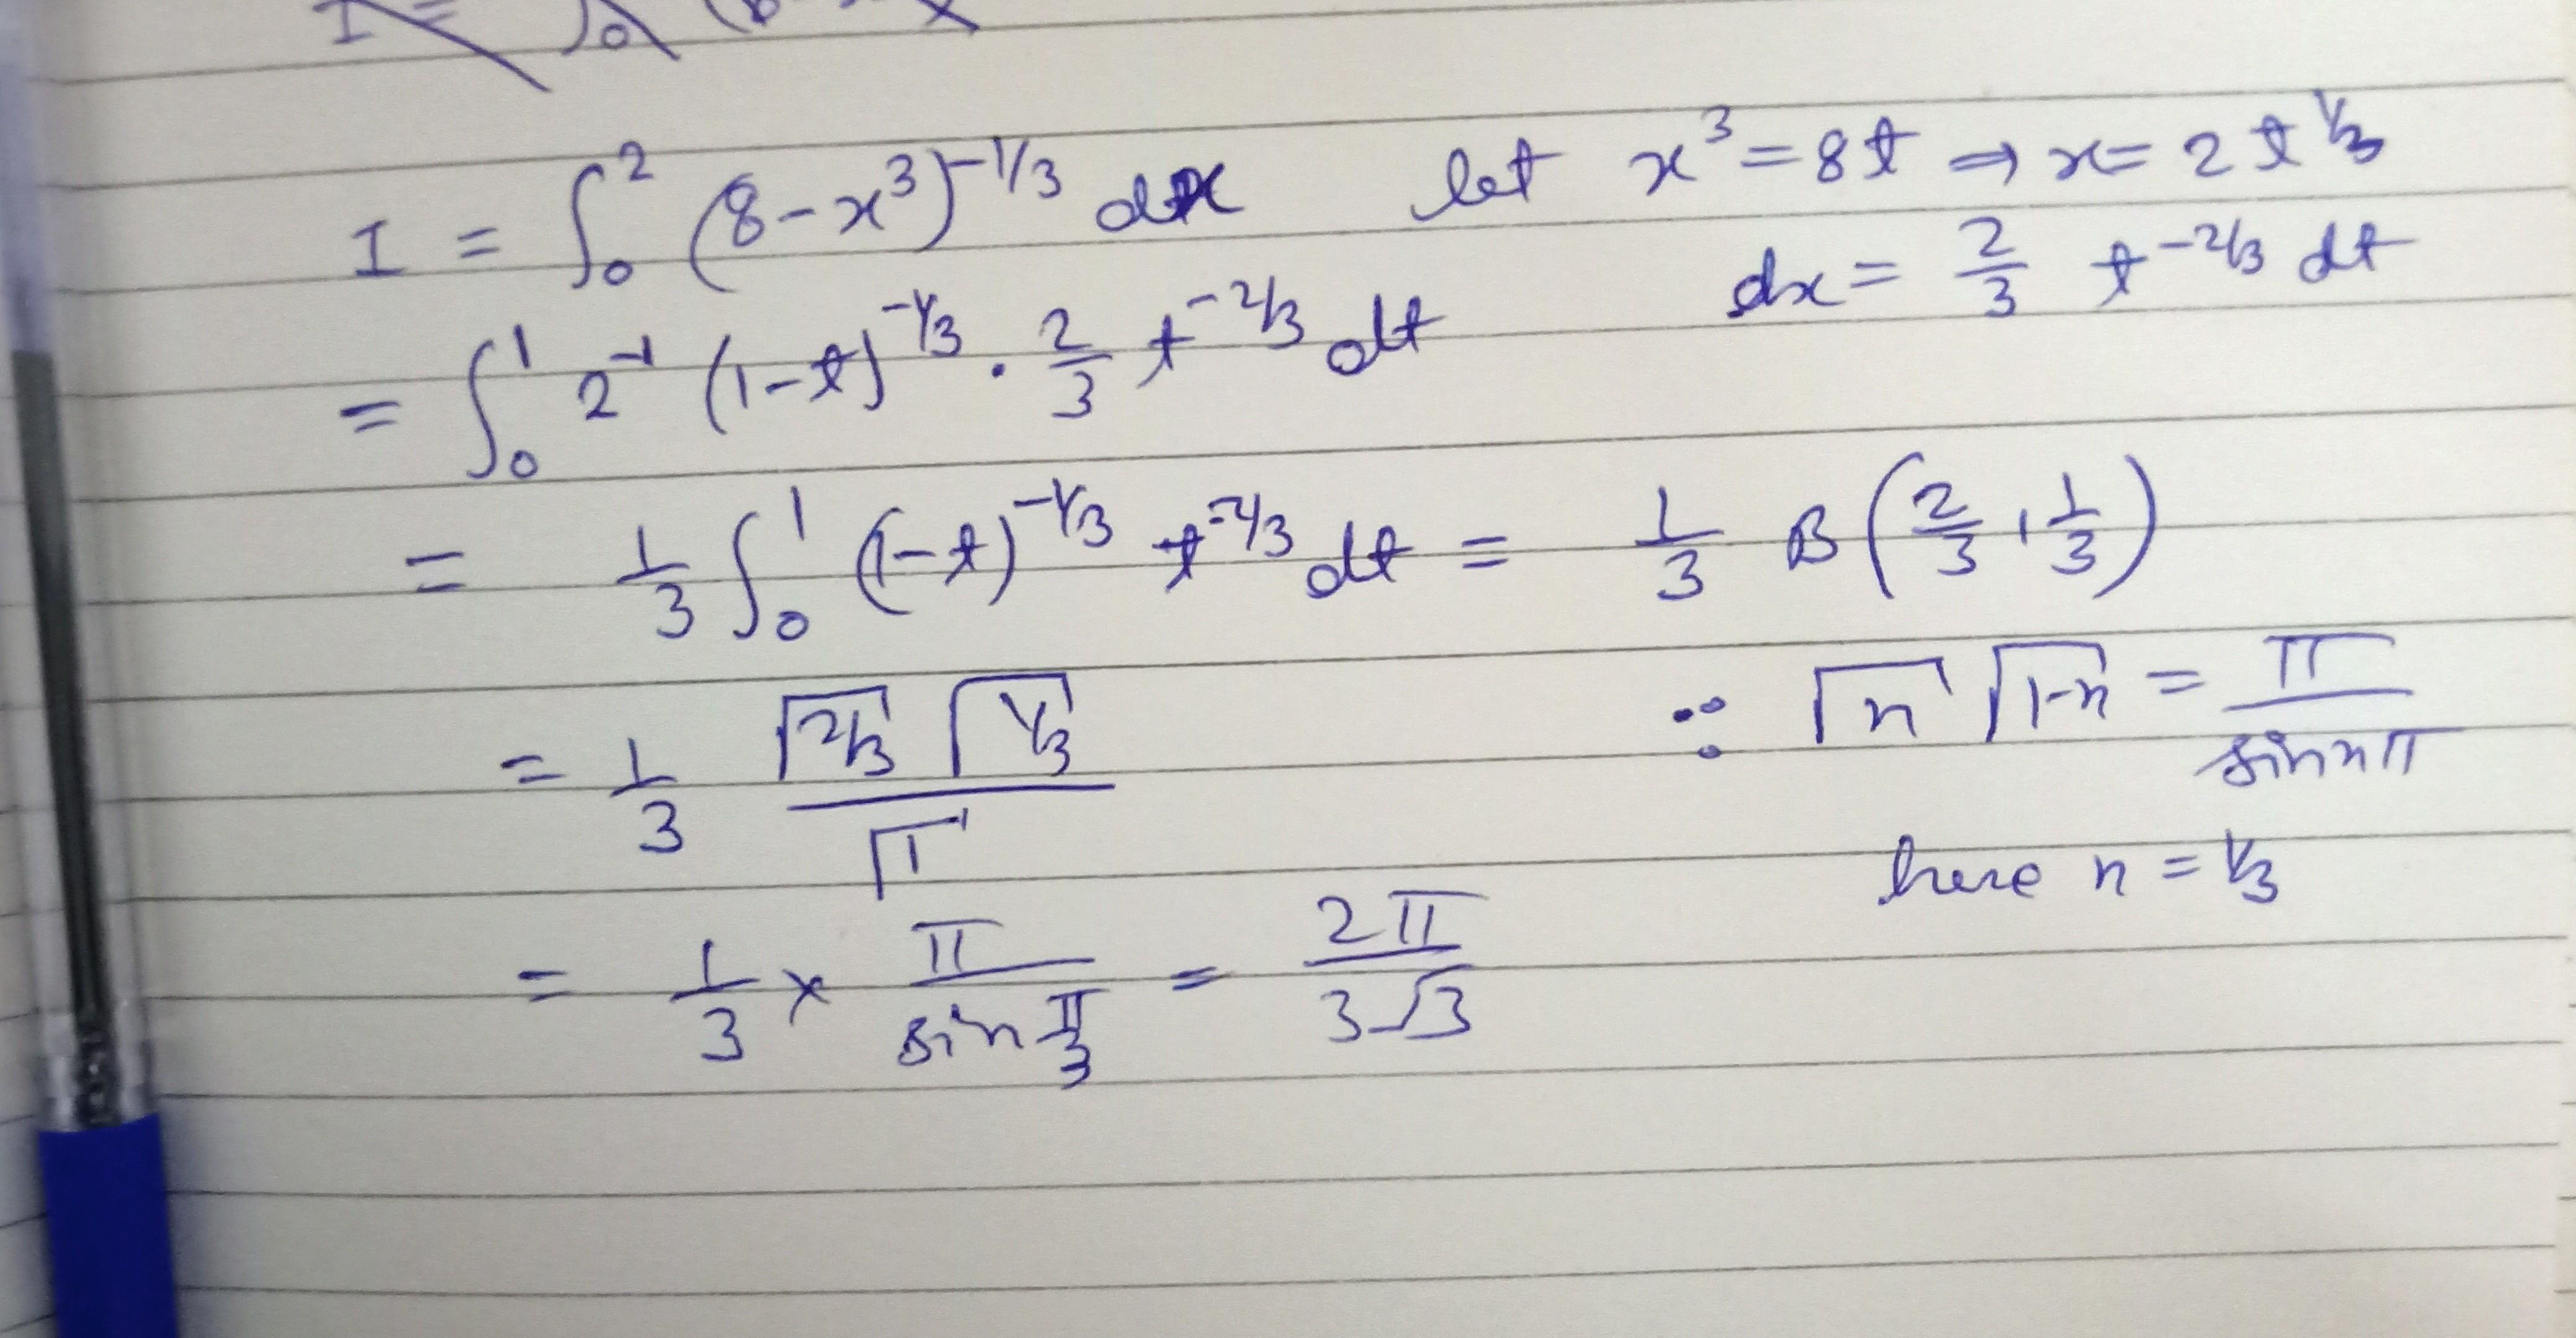 I =
I = ∫₀² (8-x³)^{-1/3} dx let x³ = 8t ⇒ x = 2t^{1/3}
= ∫₀¹ 2⁻¹ (1-t)^{-1/3} · 2/3 t^{-2/3} dt dx = 2/3 t^{-2/3} dt
= 1/3 ∫₀¹ (1-t)^{-1/3} t^{-2/3} dt = 1/3 B(2/3, 1/3)
= 1/3 Γ2/3 Γ1/3 / Γ1 ∵ Γn Γ1-n = π / sin nπ
here n = 1/3
= 1/3 × π / sin π/3 = 2π / 3√3